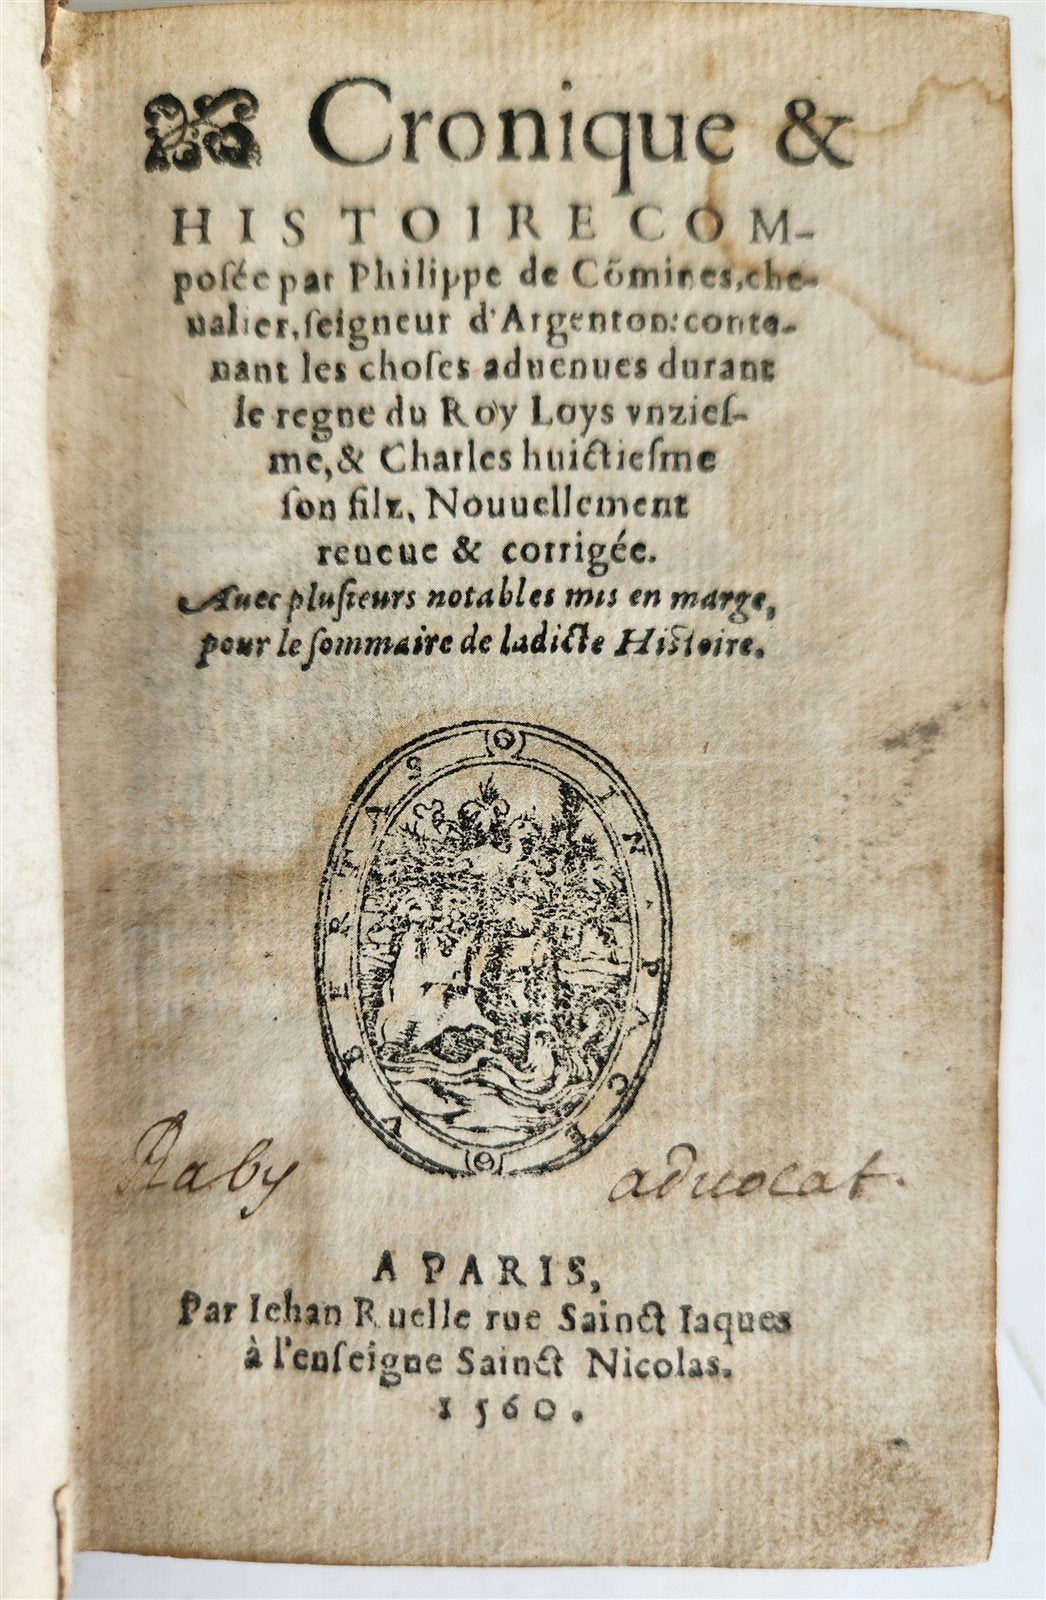 Cronique &
HISTOIRE COM-
poſée par Philippe de Cõmines, che-
ualier, ſeigneur d'Argenton: conte-
nant les choſes aduenues durant
le regne du Roy Loys vnzieſ-
me, & Charles huictieſme
ſon filz. Nouuellement
reueue & corrigée.
Auec pluſieurs notables mis en marge,
pour le ſommaire de ladicte Hiſtoire.
IN PACE VBERTAS
Raby aduocat.
A PARIS,
Par Iehan Ruelle rue Sainct Iaques
à l'enſeigne Sainct Nicolas.
1560.